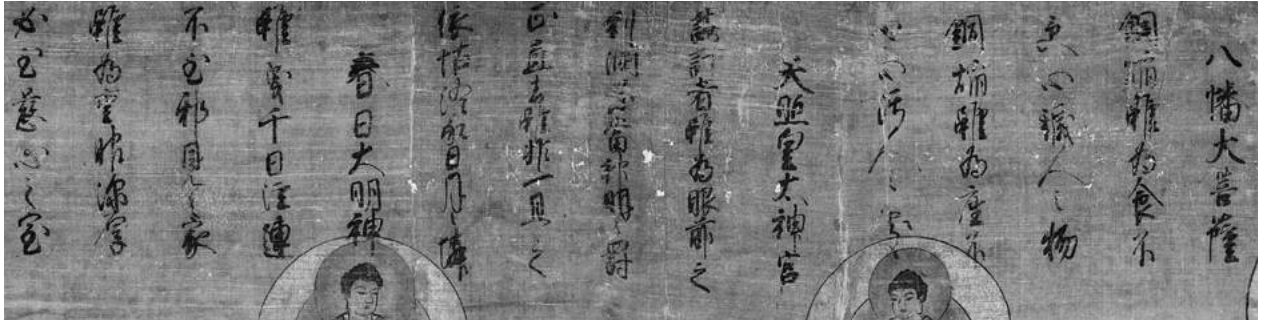 八幡大菩薩
銅焔雖為食不
受心穢人之物
銅焔雖為座不
心汚人之
天照皇太神宮
謀計者雖為眼前之
利潤必當神明之罸
正直者雖非一旦之
依怙終蒙日月憐
春日大明神
雖曳千日注連
不至邪見之家
雖為重服深厚
必至慈心之室